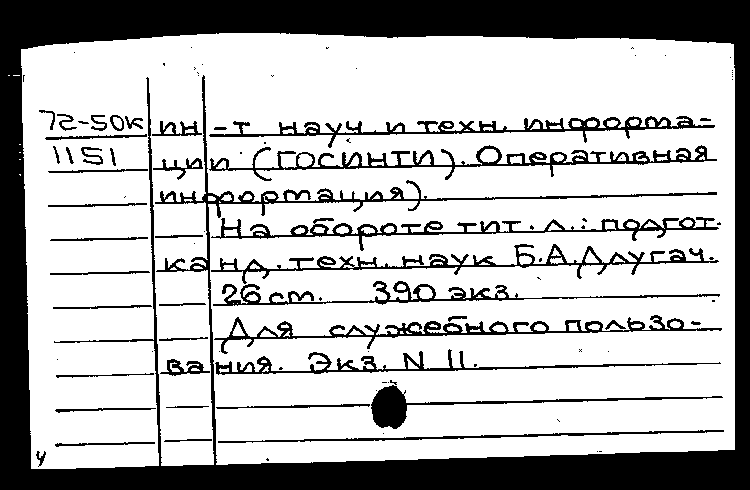 72-50к ин-т науч. и техн. информа-
1151 ции (ГОСИНТИ). Оперативная
информация).
На обороте тит. л.: подгот.
канд. техн. наук Б.А.Длугач.
26 ст. 390 экз.
Для служебного пользо-
вания. Экз. N 11.
4